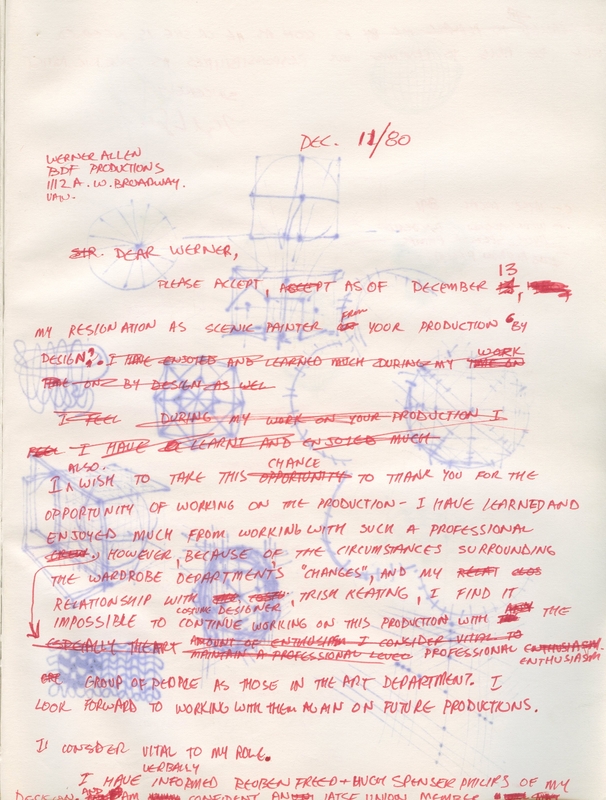 DEC. 11/80
WERNER ALLEN
BDF PRODUCTIONS
1112 A. W. BROADWAY.
VAN.
SIR. DEAR WERNER,
13
PLEASE ACCEPT, ACCEPT AS OF DECEMBER
FROM
MY RESIGNATION AS SCENIC PAINTER YOUR PRODUCTION "BY
DESIGN". I HAVE ENJOYED AND LEARNED MUCH DURING MY WORK
TIME ON BY DESIGN AS WEL
I FEEL DURING MY WORK ON YOUR PRODUCTION I
FEEL I HAVE LEARNT AND ENJOYED MUCH
ALSO. CHANCE
I ^ WISH TO TAKE THIS OPPORTUNITY TO THANK YOU FOR THE
OPPORTUNITY OF WORKING ON THE PRODUCTION - I HAVE LEARNED AND
ENJOYED MUCH FROM WORKING WITH SUCH A PROFESSIONAL
CREW. HOWEVER, BECAUSE OF THE CIRCUMSTANCES SURROUNDING
THE WARDROBE DEPARTMENT'S "CHANGES", AND MY RELAT
RELATIONSHIP WITH TRISH KEATING, I FIND IT
COSTUME DESIGNER,
IMPOSSIBLE TO CONTINUE WORKING ON THIS PRODUCTION WITH THE
ESPECIALLY THE ART AMOUNT OF ENTHUSIASM I CONSIDER VITAL TO
MAINTAIN A PROFESSIONAL LEVEL PROFESSIONAL ENTHUSIASM.
ENTHUSIASM
GROUP OF PEOPLE AS THOSE IN THE ART DEPARTMENT. I
LOOK FORWARD TO WORKING WITH THEM AGAIN ON FUTURE PRODUCTIONS.
I CONSIDER VITAL TO MY ROLE.
VERBALLY
I HAVE INFORMED REUBEN FREED + HUGH SPENSER PHILIPS OF MY
DECISION. AND AM CONFIDENT AN IATSE UNION MEMBER